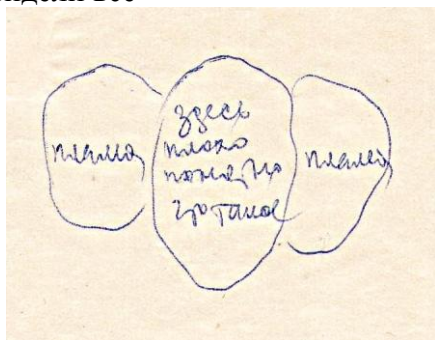 пламя
здесь
плохо
понятно
что такое
пламя